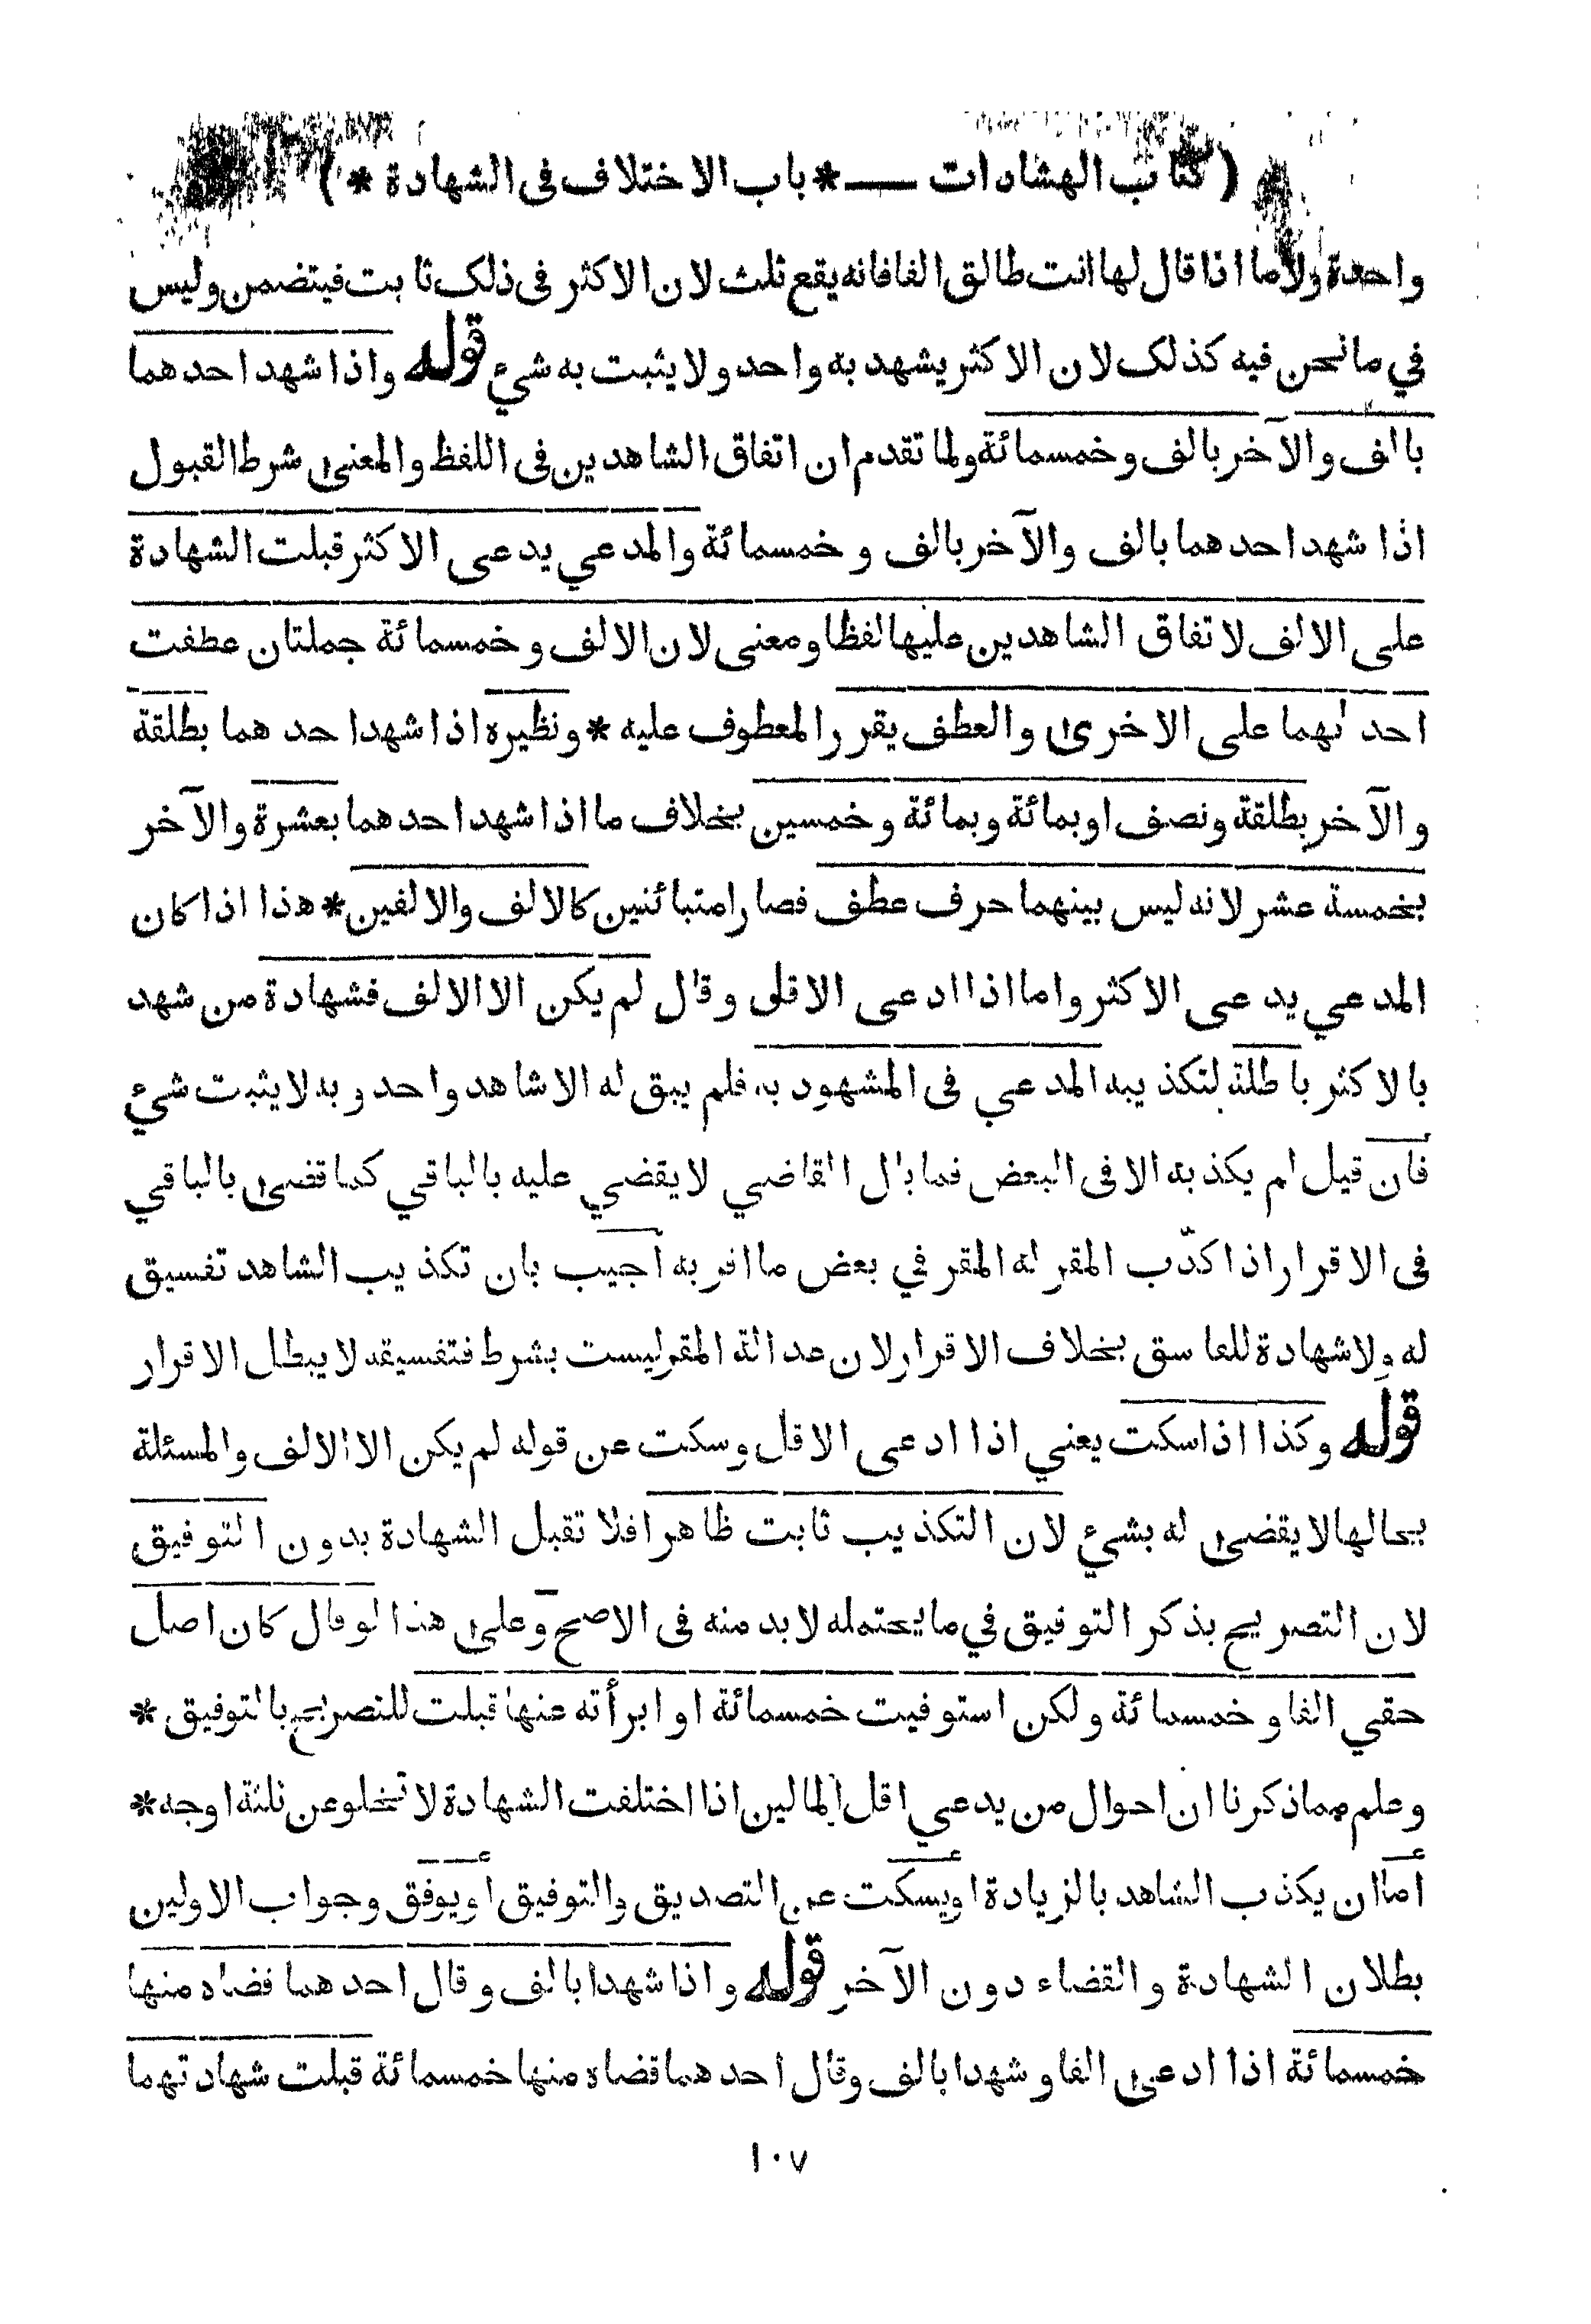 ( كتاب الهشاه ات — * باب الاختلاف فى الشهادة * )
واحدة ولا ما اذا قال لها انت طالق الفا فانه يقع ثلث لان الاكثر فى ذلك ثابت فيتضمن وليس
في ما نحن فيه كذلك لان الاكثر يشهد به واحد ولا يثبت به شيء قوله واذا شهد احدهما
بالف والآخر بالف وخمسمائة ولما تقدم ان اتفاق الشاهدين فى اللفظ والمعنى شرط القبول
اذا شهد احدهما بالف والآخر بالف و خمسمائة والمدعي يدعى الاكثر قبلت الشهادة
على الالف لاتفاق الشاهدين عليها لفظا ومعنى لان الالف وخمسمائة جملتان عطفت
احدٰهما على الاخرى والعطف يقرر المعطوف عليه * ونظيره اذا شهد احدهما بطلقة
والآخر بطلقة ونصف او بمائة وبمائة وخمسين بخلاف ما اذا شهد احدهما بعشرة والآخر
بخمسة عشر لانه ليس بينهما حرف عطف فصارا متبائنين كالالف والالفين * هذا اذا كان
المدعي يدعى الاكثر واما اذا ادعى الاقل وقال لم يكن الا الالف فشهادة من شهد
بالاكثر باطلة لتكذيبه المدعي فى المشهود به فلم يبق له الا شاهد واحد وبه لا يثبت شيء
فان قيل لم يكذبه الا فى البعض فما بال القاضي لا يقضي عليه بالباقي كما قضى بالباقي
فى الاقرار اذا كذّب المقر له المقر في بعض ما اقر به أجيب بان تكذيب الشاهد تفسيق
له ولا شهادة للفاسق بخلاف الاقرار لان عدالة المقر ليست بشرط فتفسيقه لا يبطل الاقرار
قوله وكذا اذا سكت يعني اذا ادعى الاقل وسكت عن قوله لم يكن الا الالف والمسئلة
بحالها لا يقضى له بشيء لان التكذيب ثابت ظاهرا فلا تقبل الشهادة بدون التوفيق
لان التصريح بذكر التوفيق في ما يحتمله لا بد منه فى الاصح وعلى هذا لو قال كان اصل
حقي الفا و خمسمائة ولكن استوفيت خمسمائة او ابرأته عنها قبلت للتصريح بالتوفيق *
وعلم مما ذكرنا ان احوال من يدعي اقل المالين اذا اختلفت الشهادة لا تخلو عن ثلثة اوجه *
أما ان يكذب الشاهد بالزيادة او يسكت عن التصديق والتوفيق أو يوفق وجواب الاولين
بطلان الشهادة والقضاء دون الآخر قوله واذا شهدا بالف وقال احدهما قضاه منها
خمسمائة اذا ادعى الفا وشهدا بالف وقال احدهما قضاه منها خمسمائة قبلت شهادتهما
١٠٧